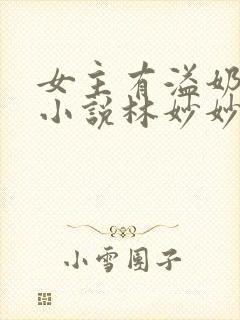 女主有溢奶
小说林妙妙
小雪团子